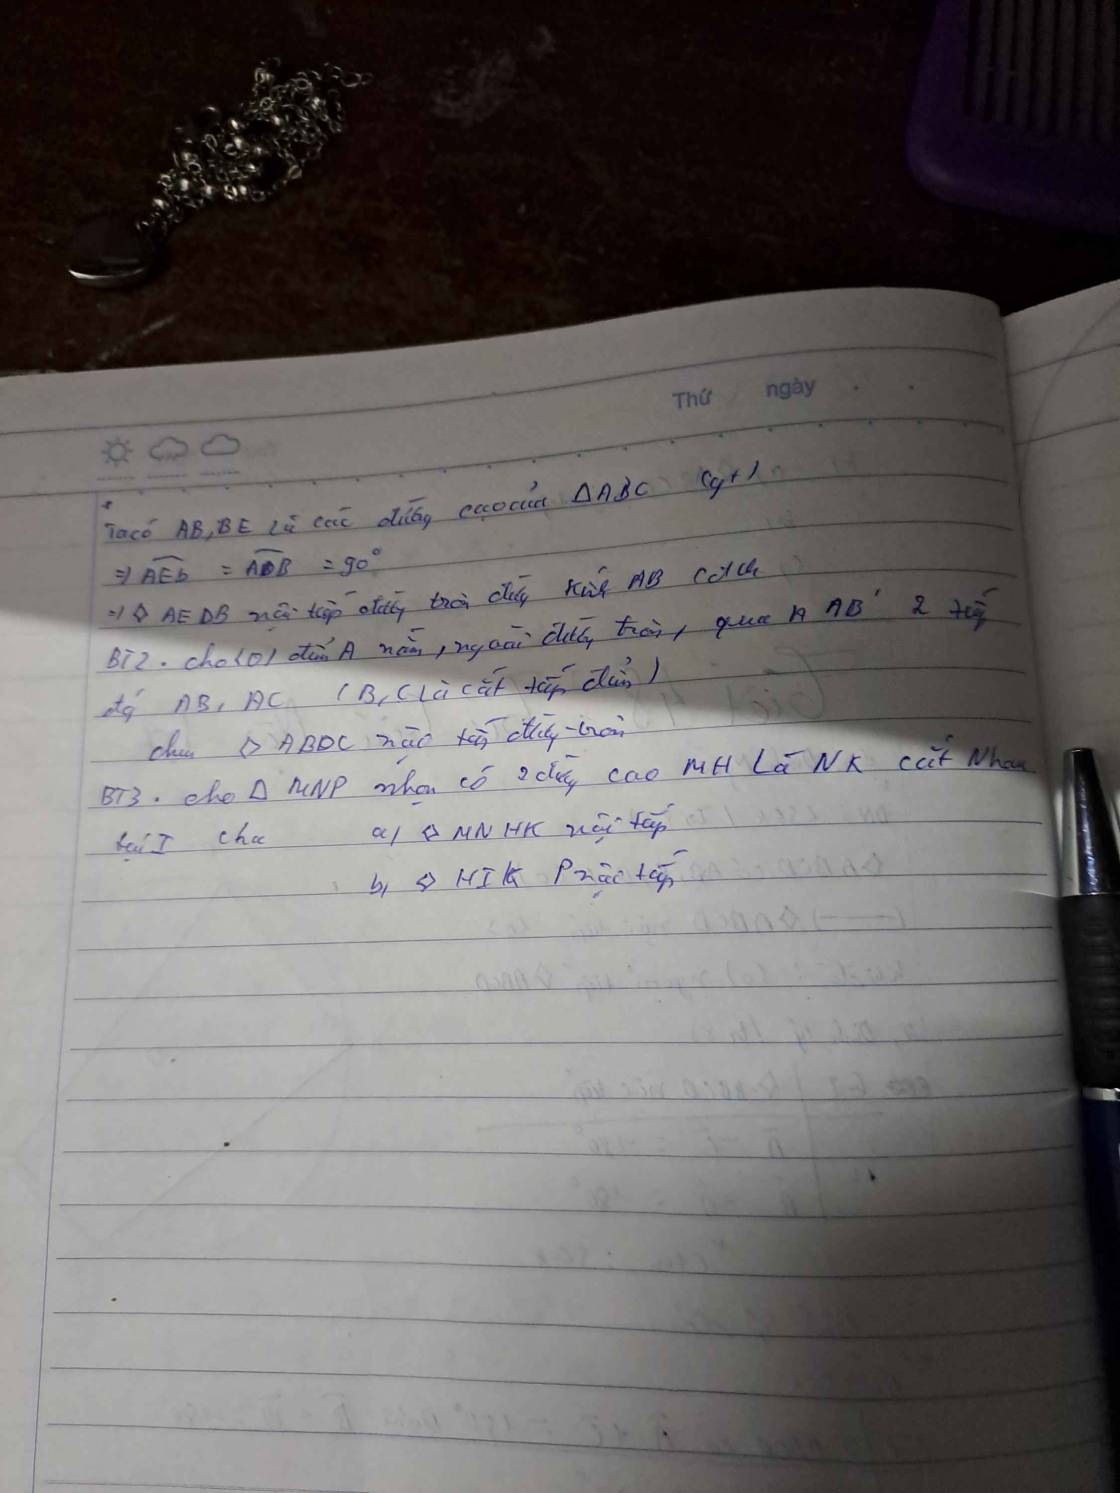 Thứ ngày
Ta có AB, BE là các đường cao của ΔABC (gt)
=> AEb = ADB = 90°
=> ◇ AEDB nội tiếp đường tròn đường kính AB
BT2. cho (O) điểm A nằm, ngoài đường tròn, qua A 2 tiếp
AB, AC (B, C là tiếp điểm)
cm ◇ ABOC nội tiếp đường tròn
BT3. cho Δ MNP nhọn có 2 đường cao MH Là NK cắt Nhau
tại I cm a, ◇ MNHK nội tiếp
b, ◇ HIK P nội tiếp